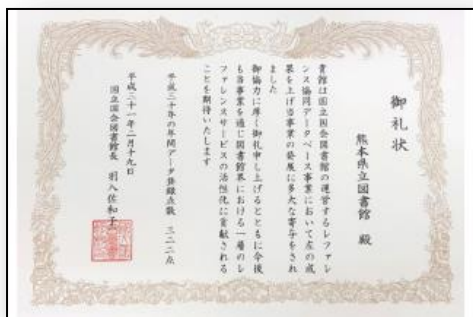 御礼状
熊本県立図書館　殿
貴館は国立国会図書館の運営するレファレ
ンス協同データベース事業において左の成
果を上げ当事業の発展に多大な寄与をされ
ました
御協力に厚く御礼申し上げるとともに今後
も当事業を通じ図書館界における一層のレ
ファレンスサービスの活性化に貢献される
ことを期待いたします
平成三十年の年間データ登録点数　三二二点
平成三十一年二月十九日
国立国会図書館長　羽入佐和子